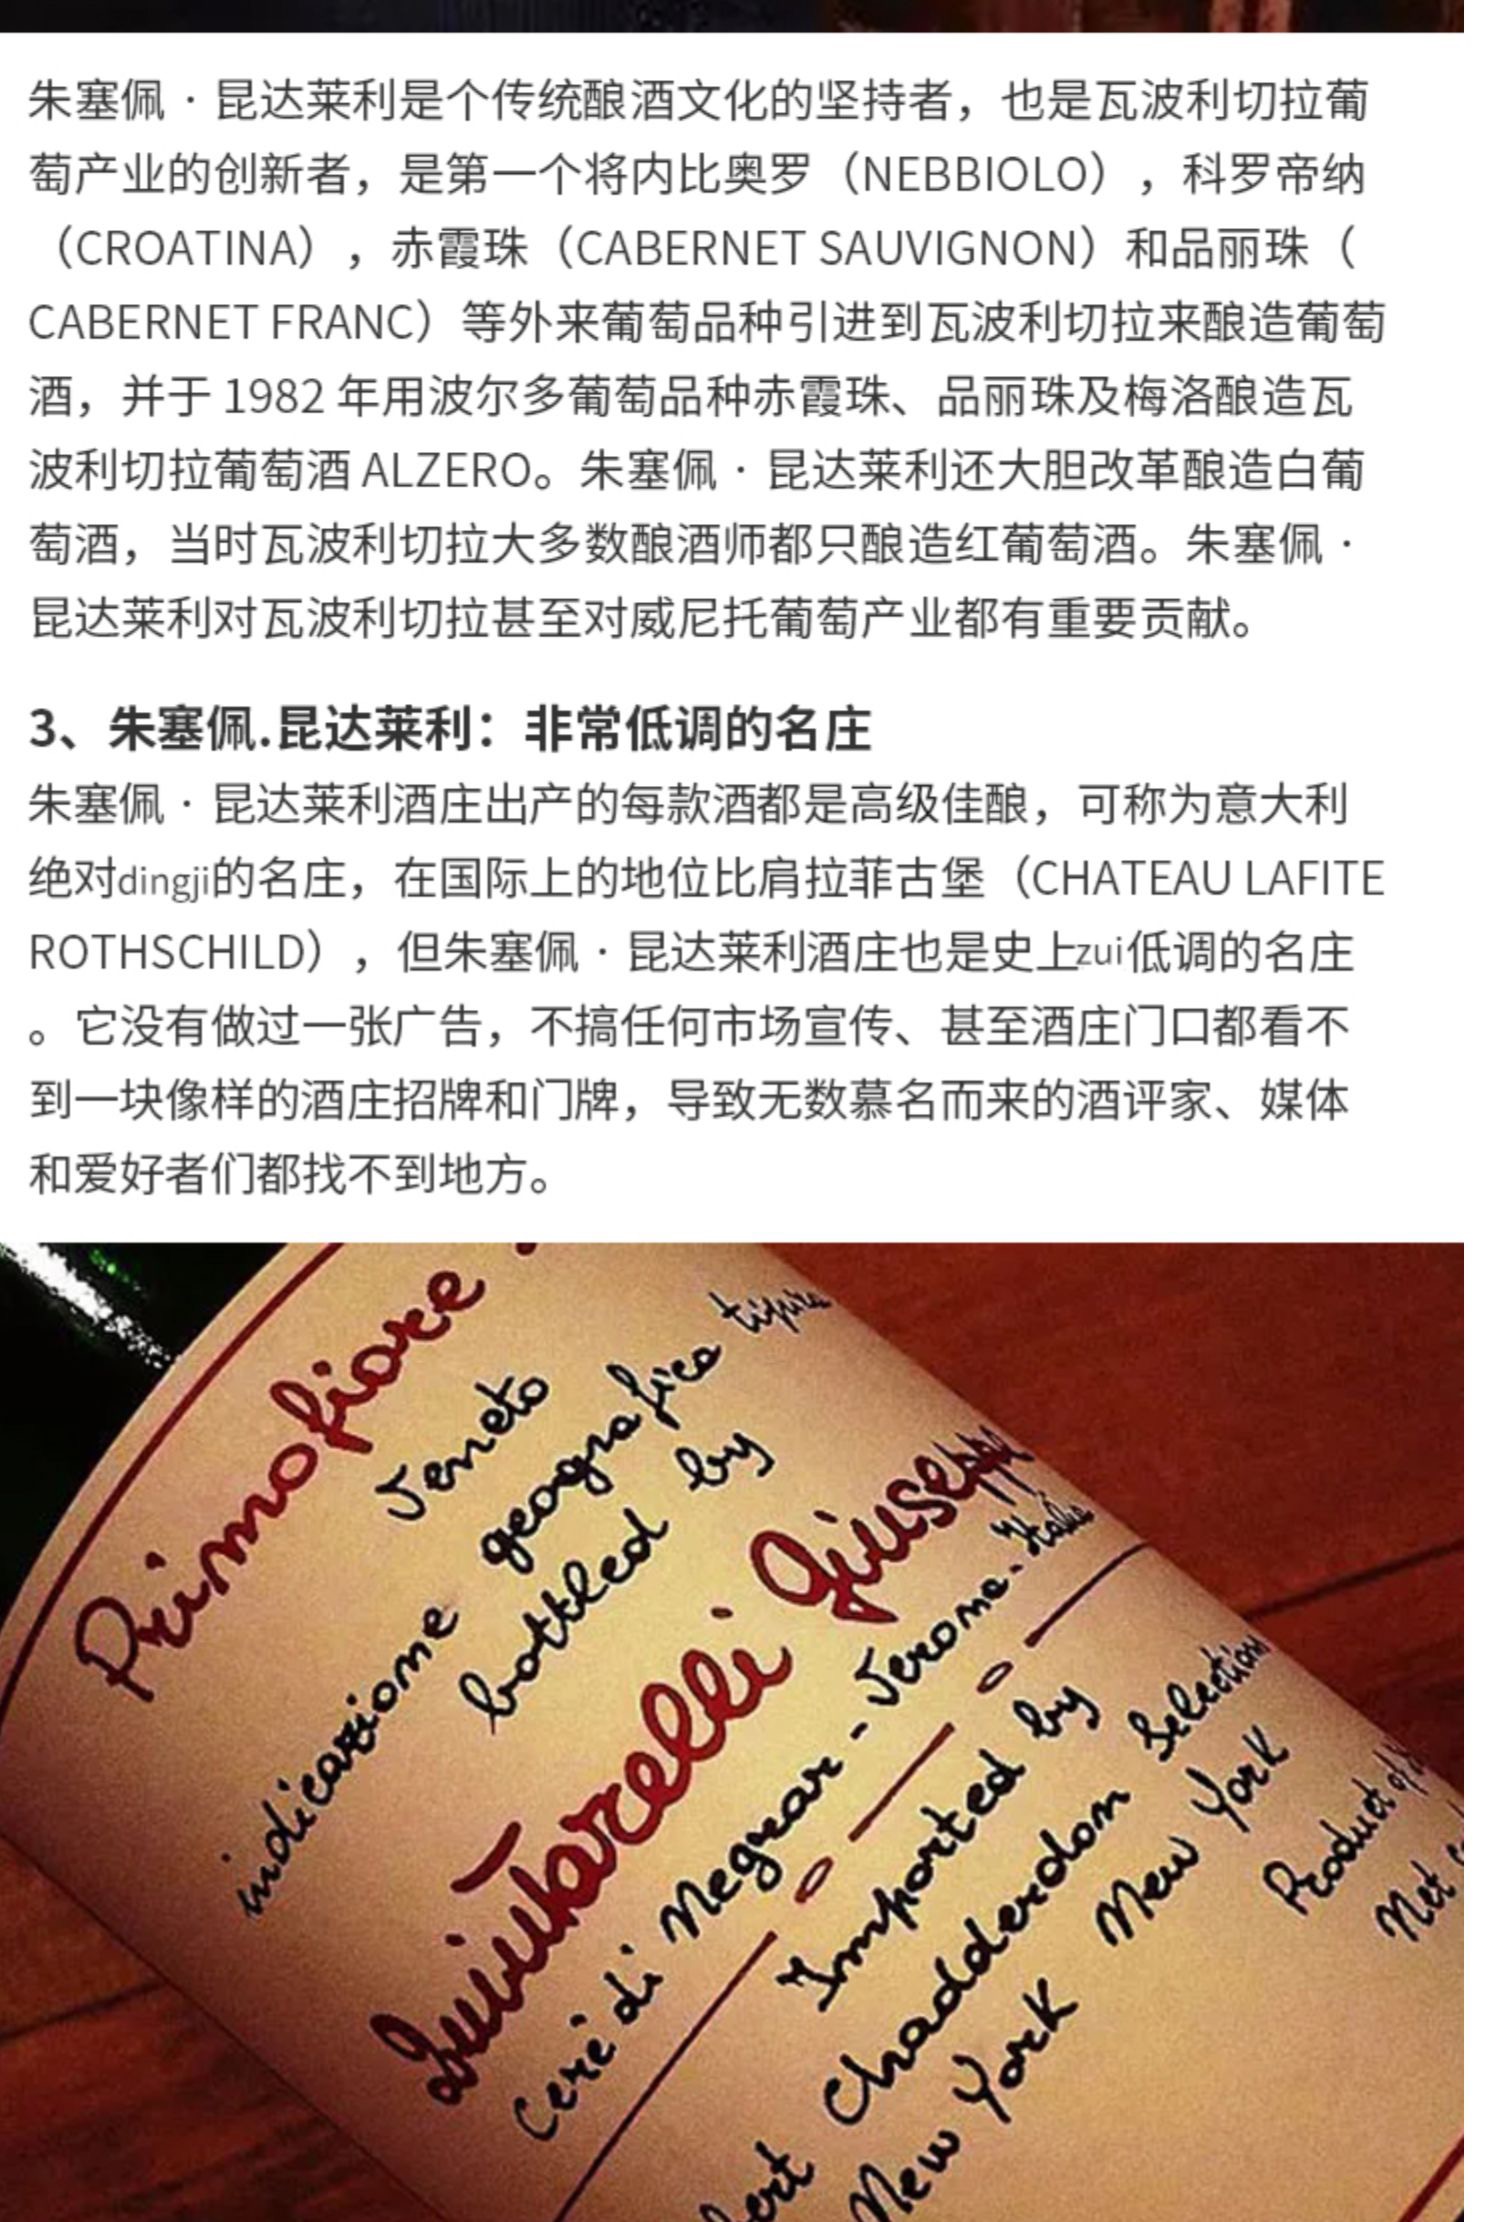 朱塞佩 · 昆达莱利是个传统酿酒文化的坚持者，也是瓦波利切拉葡
萄产业的创新者，是第一个将内比奥罗（NEBBIOLO），科罗帝纳
（CROATINA），赤霞珠（CABERNET SAUVIGNON）和品丽珠（
CABERNET FRANC）等外来葡萄品种引进到瓦波利切拉来酿造葡萄
酒，并于 1982 年用波尔多葡萄品种赤霞珠、品丽珠及梅洛酿造瓦
波利切拉葡萄酒 ALZERO。朱塞佩 · 昆达莱利还大胆改革酿造白葡
萄酒，当时瓦波利切拉大多数酿酒师都只酿造红葡萄酒。朱塞佩 ·
昆达莱利对瓦波利切拉甚至对威尼托葡萄产业都有重要贡献。
3、朱塞佩.昆达莱利：非常低调的名庄
朱塞佩 · 昆达莱利酒庄出产的每款酒都是高级佳酿，可称为意大利
绝对dingji的名庄，在国际上的地位比肩拉菲古堡（CHATEAU LAFITE
ROTHSCHILD），但朱塞佩 · 昆达莱利酒庄也是史上zui低调的名庄
。它没有做过一张广告，不搞任何市场宣传、甚至酒庄门口都看不
到一块像样的酒庄招牌和门牌，导致无数慕名而来的酒评家、媒体
和爱好者们都找不到地方。
Primofiore
Veneto
indicazione geografica tipica
bottled by
Quintarelli Giuseppe
Cerè di Negrar - Verona - Italia
Imported by
Chadderdon Selections
New York New York
Product of
Net